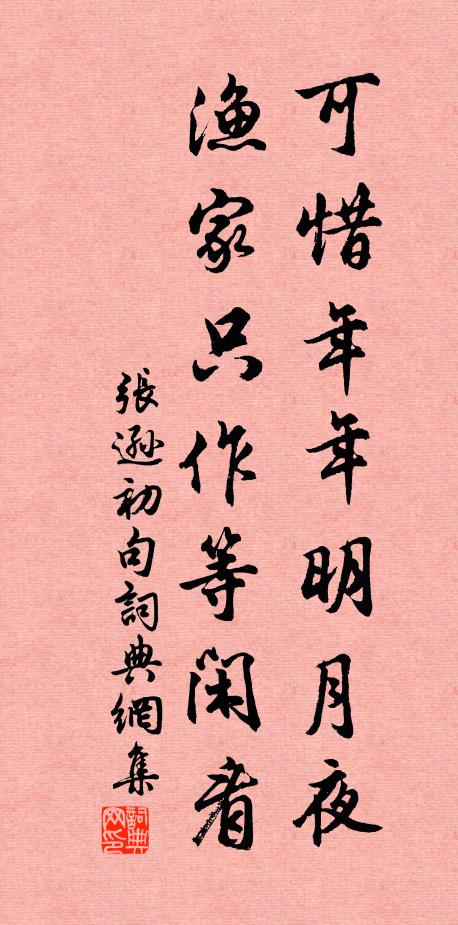 可惜年年明月夜
渔家只作等闲看
張遜初句詞典網集
詞典网印